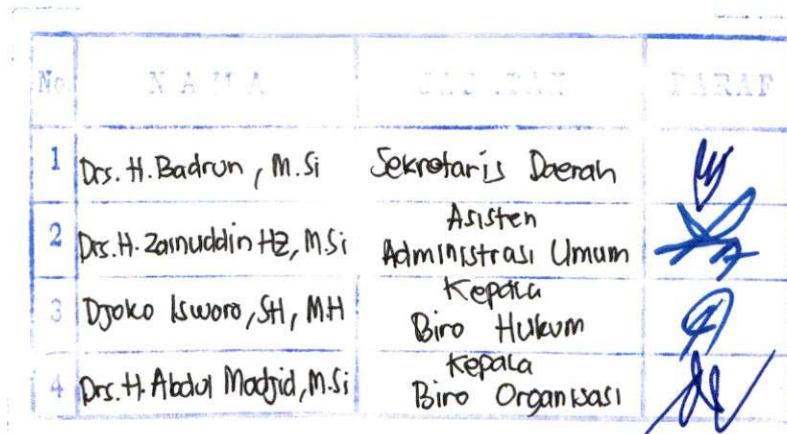 No. NAMA JABATAN PARAF
1 Drs. H. Badrun, M.Si Sekretaris Daerah
2 Drs. H. Zainuddin HZ, M.Si Asisten Administrasi Umum
3 Djoko Isworo, SH, MH Kepala Biro Hukum
4 Drs. H. Abdul Madjid, M.Si Kepala Biro Organisasi